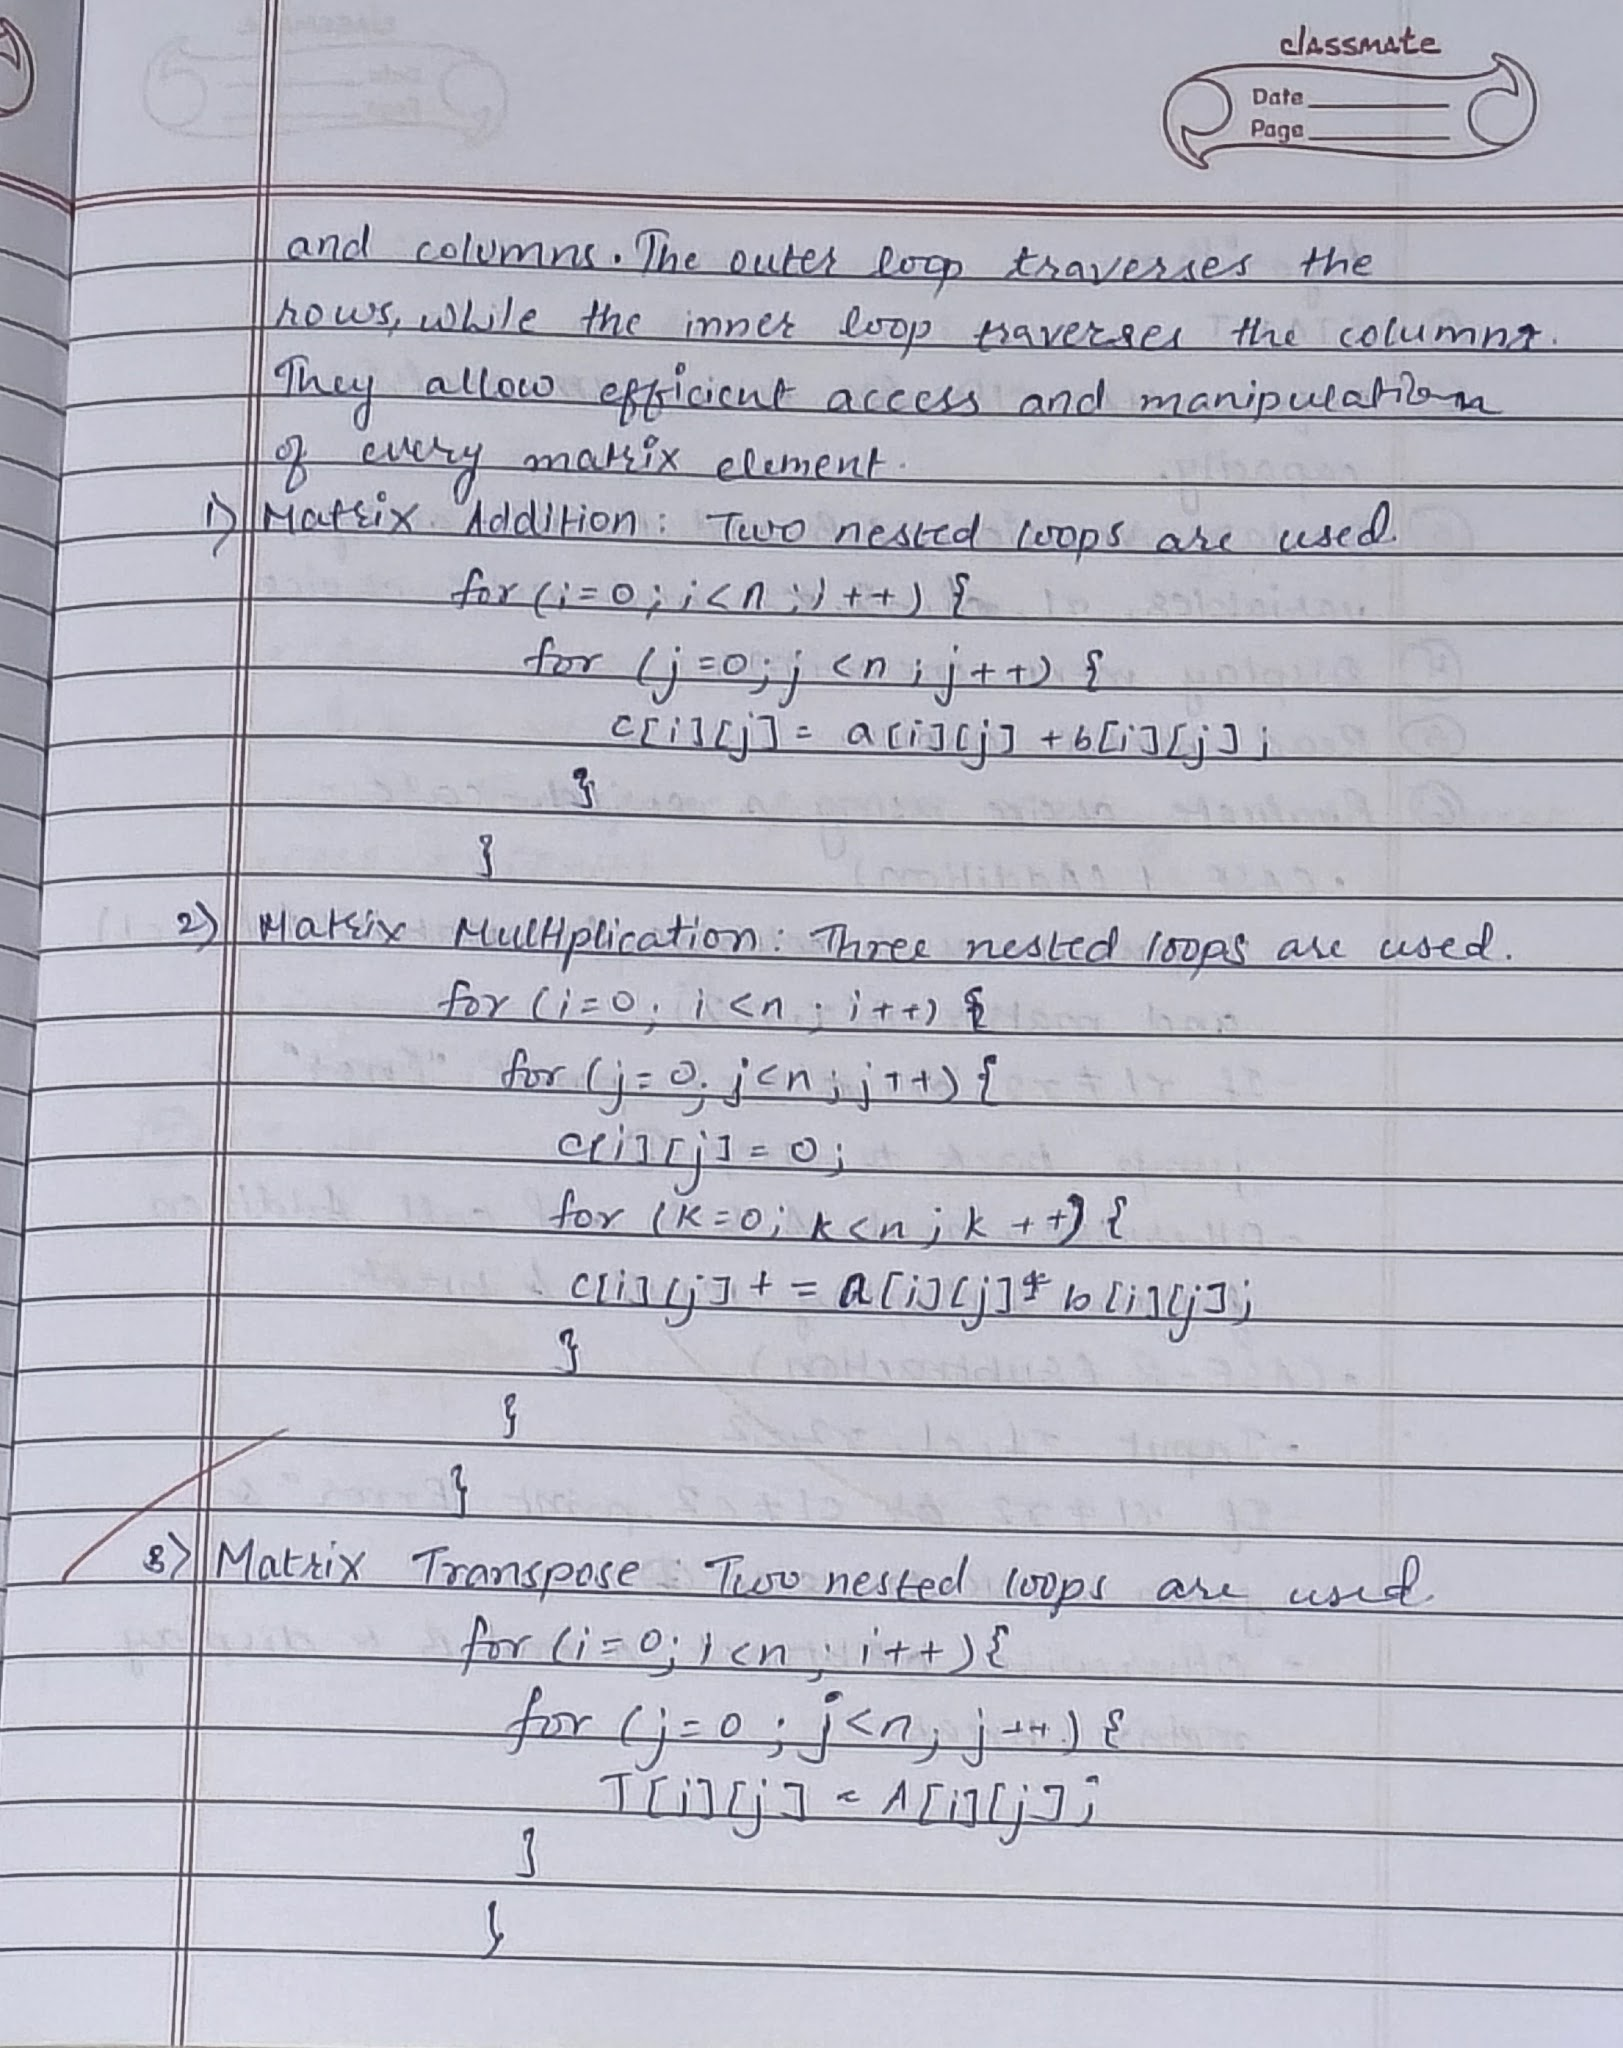 classmate
Date
Page
and columns. The outer loop traverses the
rows, while the inner loop traverses the columns.
They allow efficient access and manipulation
of every matrix element.
1) Matrix Addition: Two nested loops are used.
for (i=0; i<n; i++) {
for (j=0; j<n; j++) {
c[i][j] = a[i][j] + b[i][j];
}
}
2) Matrix Multiplication: Three nested loops are used.
for (i=0; i<n; i++) {
for (j=0; j<n; j++) {
c[i][j] = 0;
for (k=0; k<n; k++) {
c[i][j] += a[i][j] * b[i][j];
}
}
}
3) Matrix Transpose: Two nested loops are used
for (i=0; i<n; i++) {
for (j=0; j<n; j++) {
T[i][j] = A[i][j];
}
}